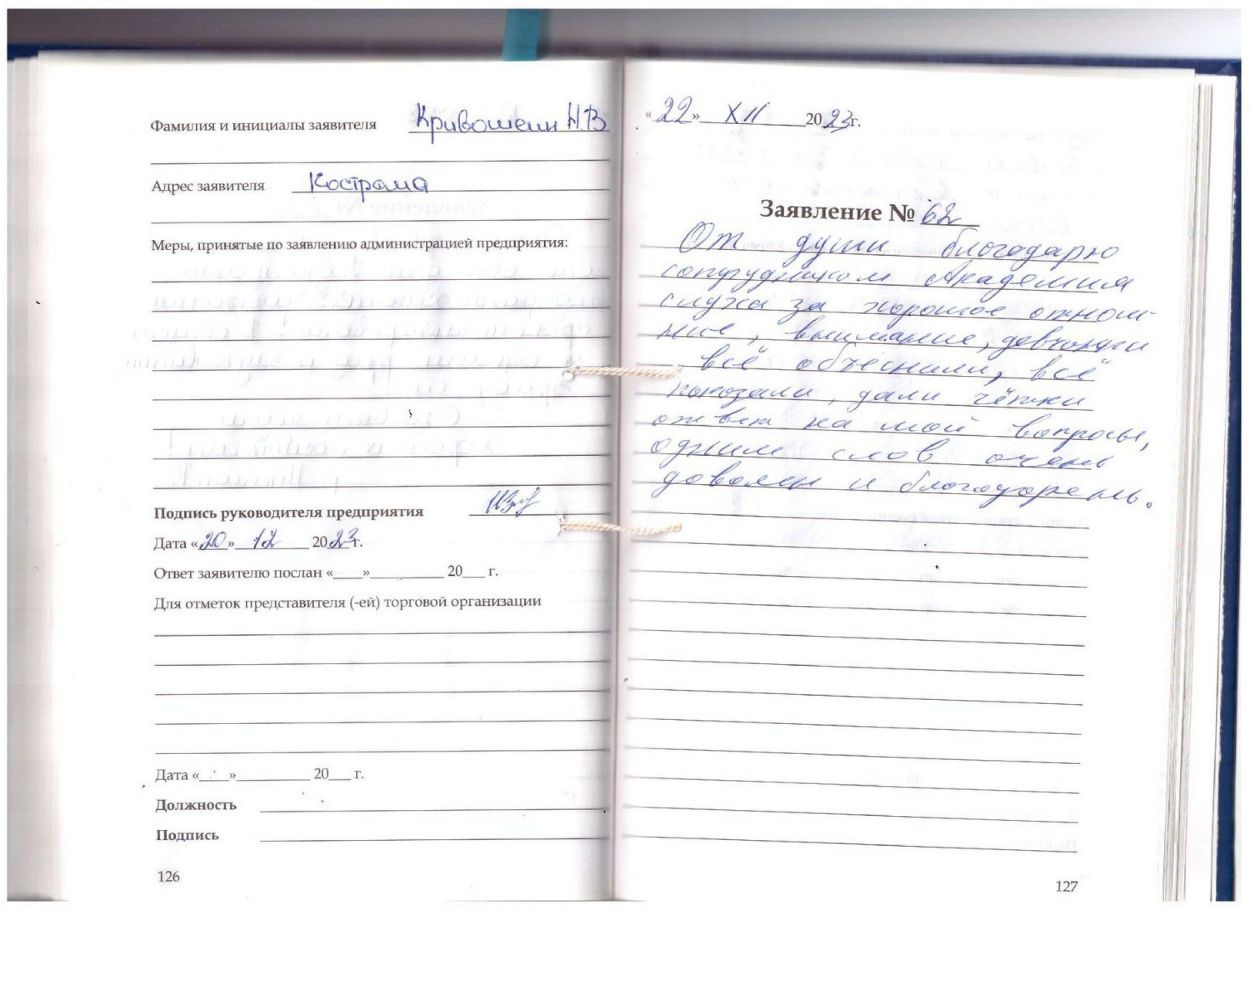 Фамилия и инициалы заявителя Кривошеин Н.В
Адрес заявителя Кострома
Меры, принятые по заявлению администрацией предприятия:
Подпись руководителя предприятия
Дата «20» 12 2023г.
Ответ заявителю послан «____»__________ 20___ г.
Для отметок представителя (-ей) торговой организации
Дата «____»__________ 20___ г.
Должность
Подпись
126
«22» XII 2023г.
Заявление № 62
От души благодарю
сотрудником Академия
слуха за хорошое отнош-
ние, внимание, девчонки
всё объеснили, всё
показали, дали чётки
ответ на мой вопросы,
одним слов очень
доволен и благодарень.
127